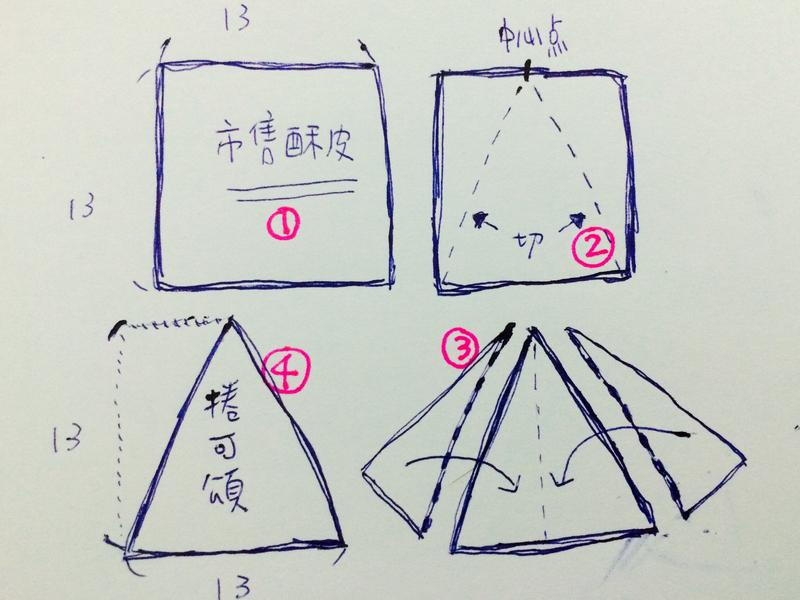 13
13
市售酥皮
①
中心点
切
②
③
④
捲可頌
13
13